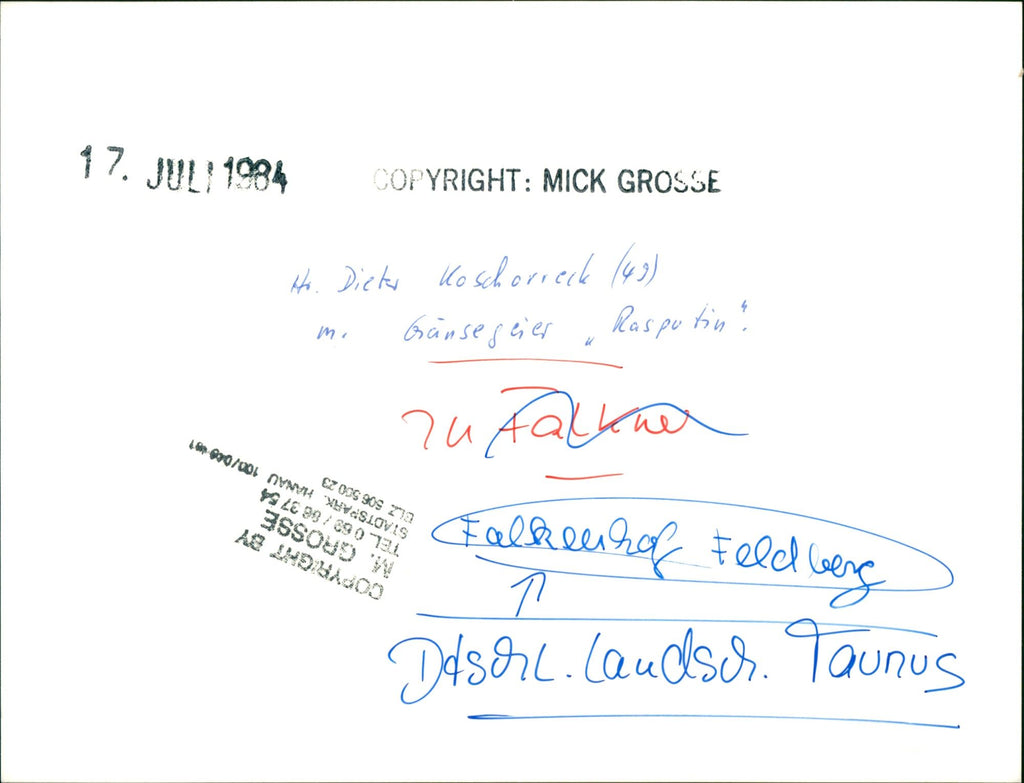 17. JULI 1984
COPYRIGHT: MICK GROSSE
Hr. Dieter Koschorreck (49)
m. Gänsegeier „Rasputin".
zu Falkner
COPYRIGHT BY
M. GROSSE
TEL. 0 62 / 86 37 54
STADTSPARK. HANAU
BLZ 506 500 23
Falkenhof Feldberg
Dtschl. Landsch. Taunus